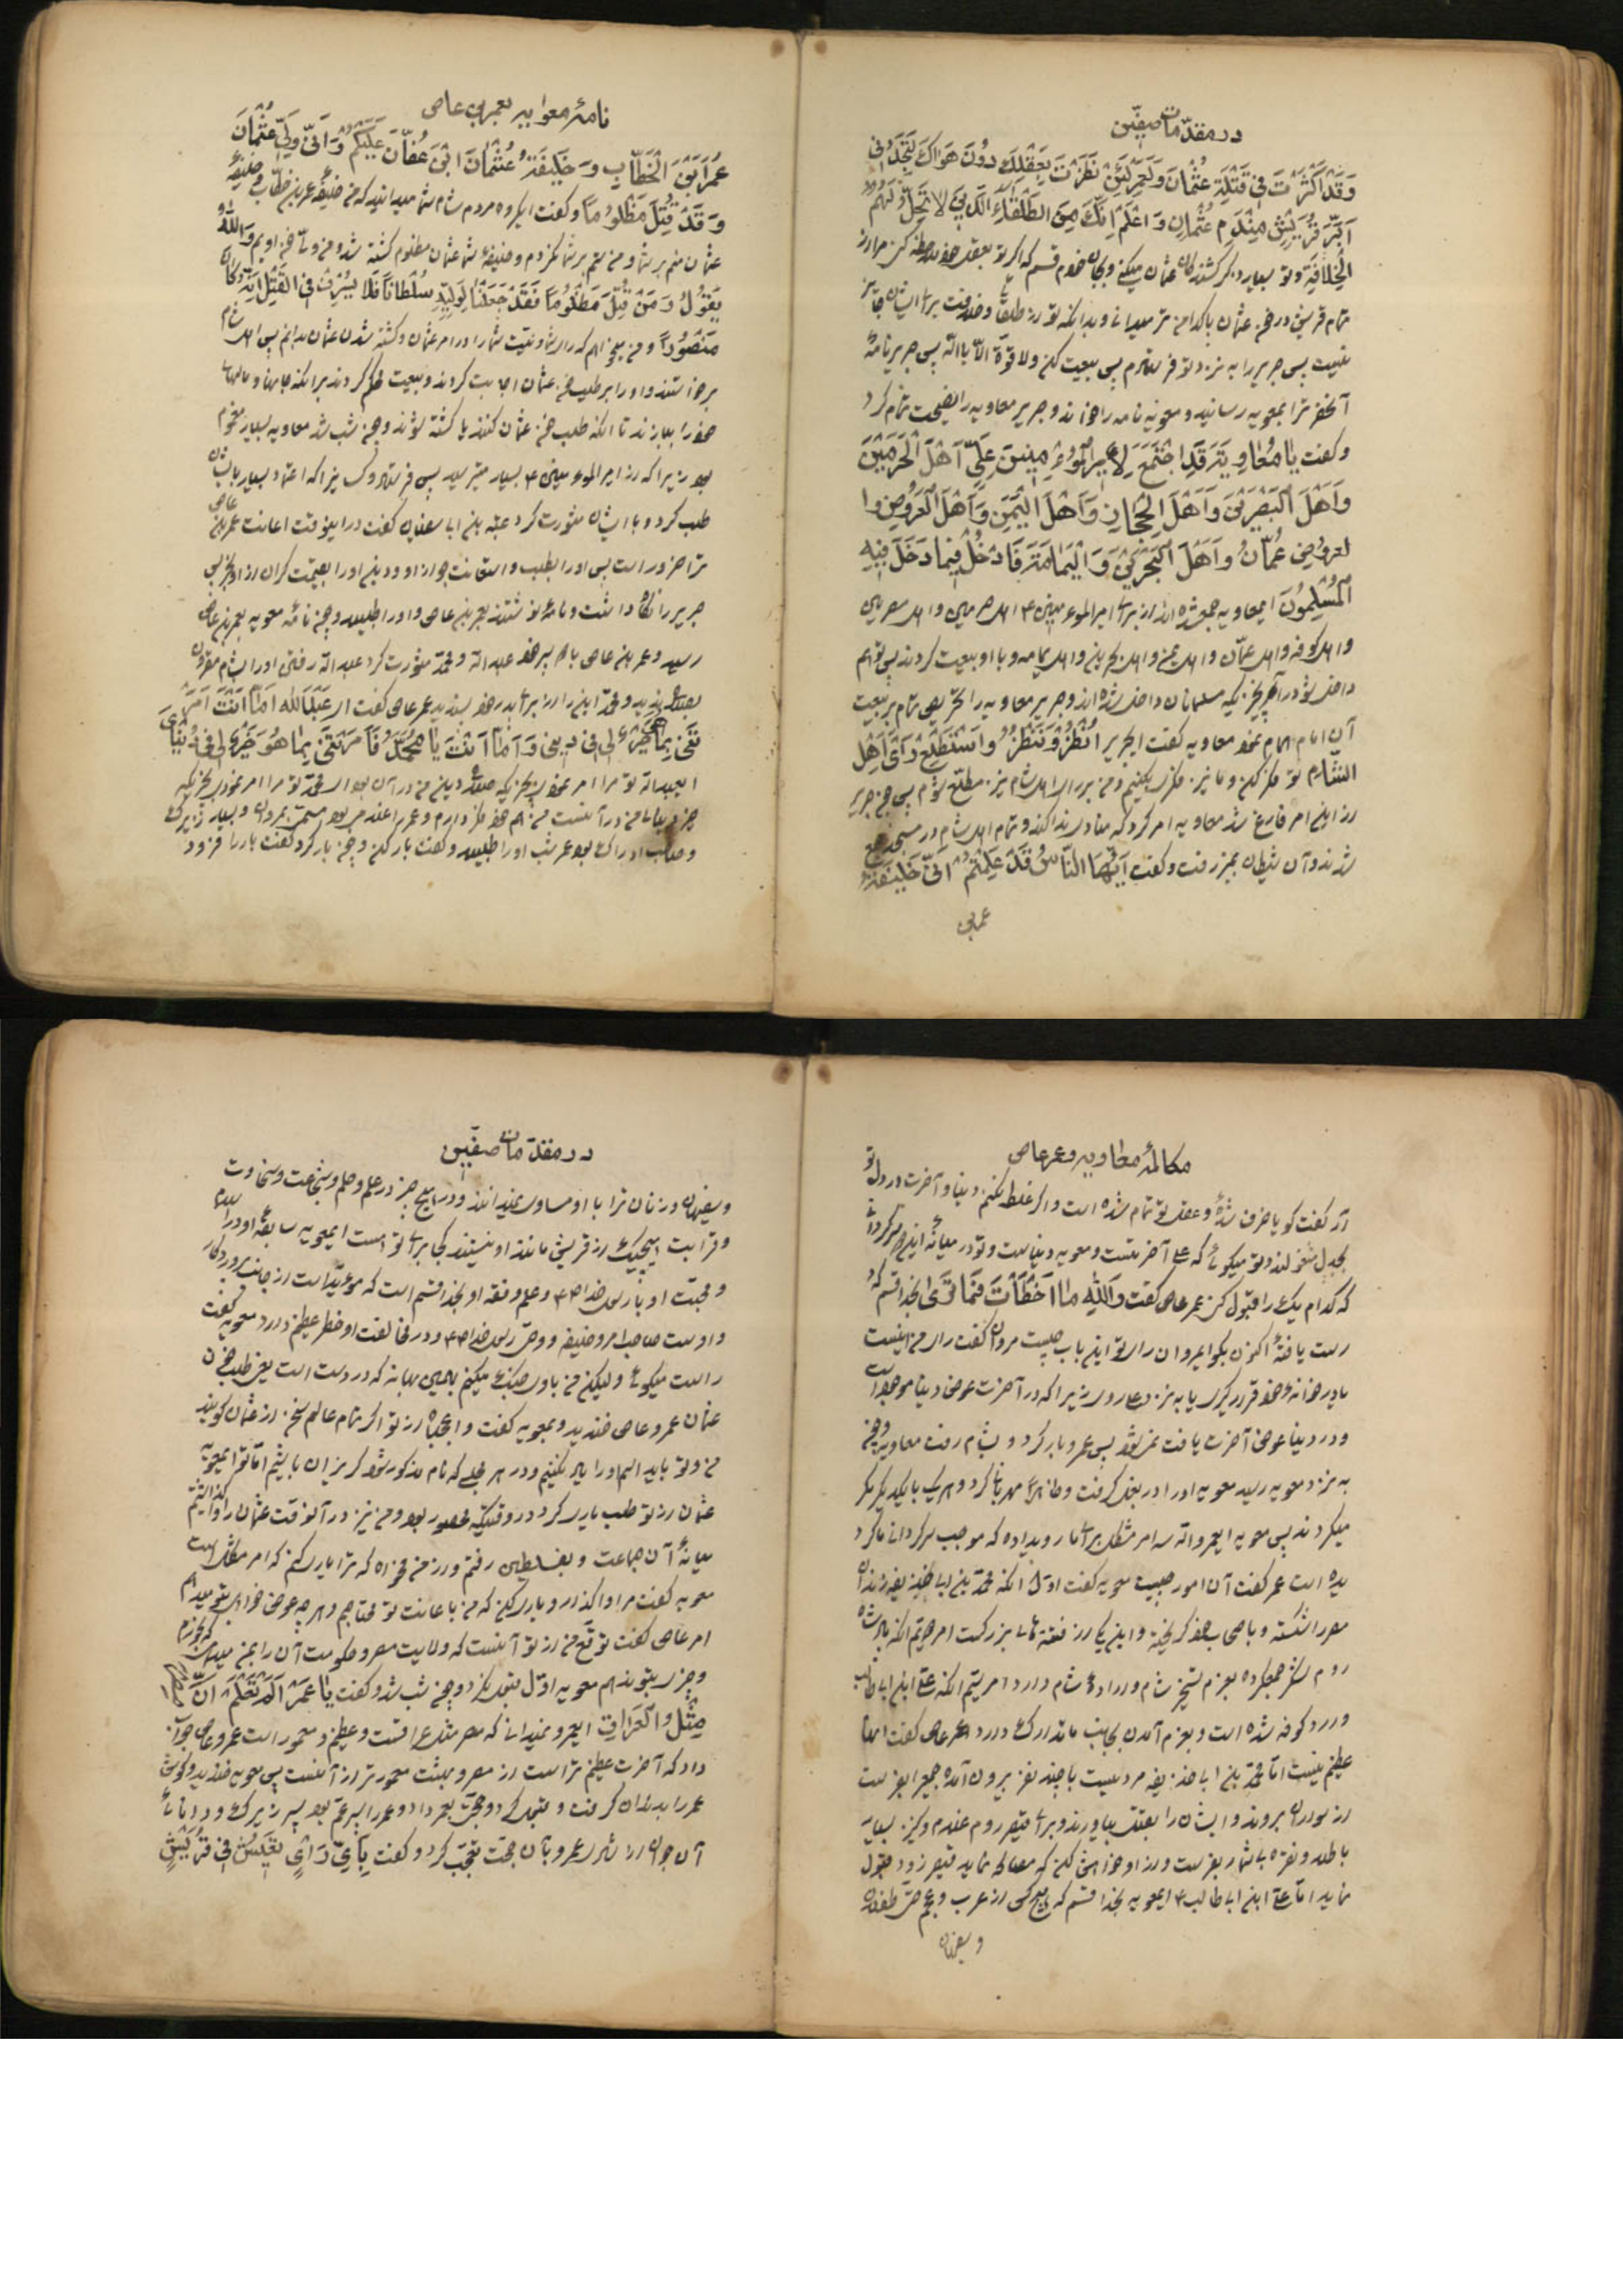 در مقدّمات صفّین
وَقَدْ اَکْثَرْتَ فِی قَتَلَةِ عُثْمٰانَ وَلَعَمْری لَئِنْ نَظَرْتَ بِعَقْلِکَ دُونَ هَوٰاکَ لَتَجِدَنی
اَبَرَّ قُرَیْشٍ مِنْ دَمِ عُثْمٰانِ وَاعْلَمْ اِنَّکَ مِنَ الطُّلَقٰاءِ الَّذینَ لاٰ تَحِلُّ لَهُمُ
الْخِلاٰفَةِ وتو بسیار ذکر کشندکان عثمان میکنی وبجان خودم قسم که اکر تو بعقل خود ملاحظه کنی مرا از
تمام قریش در خون عثمان پاکدامن تر میدانی وبدانکه تو از طلقائی وخلافت برای ایشان جایز
نیست پس جریر را به نزد تو فرستادم پس بیعت کن ولا قوّة الّا باللّه پس جریر نامهٔ
آنحضرترا بمعویه رسانید ومعویه نامه را خواند وجریر معاویه را نصیحت تمام کرد
وکفت یٰا مُعٰاوِیَةُ قَدِ اجْتَمَعَ لِاَمیرِ الْمُؤْمِنینَ عَلِیٍّ اَهْلُ الْحَرَمَیْنِ
وَاَهْلُ الْبَصْرَتَیْنِ وَاَهْلُ الْحِجٰازِ وَاَهْلُ الْیَمَنِ وَاَهْلُ الْعَرُوضِ وا
لعروض عُمّٰانُ وَاَهْلُ الْبَحْرَیْنِ وَالْیَمٰامَةِ فَادْخُلْ فیمٰا دَخَلَ فیهِ
الْمُسْلِمُونَ ایمعاویه جمع شده اند از برای امیر المؤمنین ع اهل حرمین واهل مصرین
واهل کوفه واهل عمّان واهل یمن واهل بحرین واهل یمامه وبا او بیعت کردند پس تو هم
داخل شو در آنچیزیکه مسلمانان داخل شده اند وجریر معاویه را تحریص تمام بر بیعت
آن امام همام نمود معاویه کفت ایجریر اُنْظُرُ وَنَنْظُرُ وَاسْتَطْلِعُ رَأْیَ اَهْلِ
الشّٰامِ تو فکر کن وما نیز فکری بکنیم ومن بر رای اهل شام نیز مطلع شوم پس چون جریر
از این امر فارغ شد معاویه امر کرد که منادی ندا کند وتمام اهل شام در مسجد جمع
شدند وآن شیطان بمنبر رفت وکفت اَیُّهَا النّٰاسُ قَدْ عَلِمْتُمْ اَنّی خَلیفَةُ
عمر بن
نامهٔ معوایه بعمر بن عاص
عُمَرَ ابْنَ الْخَطّٰابِ وَخَلیفَةُ عُثْمٰانَ ابْنَ عَفّٰانَ عَلَیْکُمْ وَاَنّی وَلِیُّ عُثْمٰانَ
وَقَدْ قُتِلَ مَظْلُومًا وکفت ایکروه مردم شام شما میدانید که من خلیفهٔ عمر بن خطّاب وخلیفهٔ
عثمان منم بر شما ومن ستم بر شما نکردم وخلیفهٔ شما عثمان مظلوم کشته شد ومن ولیّ خون اویم وَاللّٰهُ
یَقُولُ وَمَنْ قُتِلَ مَظْلُومًا فَقَدْ جَعَلْنٰا لِوَلِیِّهِ سُلْطٰانًا فَلاٰ یُسْرِفْ فِی الْقَتْلِ اِنَّهُ کٰانَ
مَنْصُورًا ومن میخواهم که رای شما ونیّت شما را در امر عثمان وکشته شدن عثمان بدانم پس اهل شام
برخواستند واو را بر طلب خون عثمان اجابت کردند وبیعت محکم کردند بر آنکه جانها ومالهای
خود را ببازند تا آنکه طلب خون عثمان کنند یا کشته شوند وچون شب شد معاویه بسیار مغموم
بود زیرا که از امیر المؤمنین ع بسیار میترسید پس فرستاد وکسانیرا که اعتماد بسیار بایشان
طلب کرد وبا ایشان مشورت کرد عتبه بن ابا سفیان کفت در اینوقت اعانت عمر بن عاص
ترا ضرور است پس او را بطلب واستعانت بجو از او ودین او را بقیمت کران از او بخر پس
جریر را نکاه داشت ونامهٔ نوشتند بعمر بن عاص واو را طلبید وچون نامهٔ معویه بعمر بن عاص
رسید وعمر بن عاص با دو پسر خود عبد اللّه ومحمّد مشورت کرد عبد اللّه رفتن او را بشام مقرون
بصلاح ندید ومحمّد این را از برای پدر خود پسندید عمر عاص کفت ای عَبْدَ اللّٰه اَمّٰا اَنْتَ اَمَرْتَ
نَنی بِمٰا هُوَ خَیْرٌ لی فی دینی وَاَمّٰا اَنْتَ یٰا مُحَمَّدُ فَاَمَرْتَنی بِمٰا هُوَ خَیْرٌ لی فی دُنْیٰایَ
ایعبد اللّه تو مرا امر نمودی بچیزیکه صلاح دین من در آن بود ای محمّد تو مرا امر نمودی بچیزیکه
خیر دنیای من در آنست من هم خود فکر دارم وعمر را غلامی بود مسمّی بمروان وبسیار زیرک
وصاحب ادراک بود عمر شب او را طلبید وکفت بار کن وچون بار کرد کفت بار را فرود
مکالمهٔ معاویه وعمر عاص
آر کفت کویا خرف شدهٔ وعقل تو تمام شده است واکر غلط نکنم دنیا وآخرت در دل تو
بجدل مشغولند وتو میکوئی که علی آخرتست ومعویه دنیاست وتو در میانهٔ این دو سرکردانی
که کدام یک را قبول کنی عمر عاص کفت وَاللّٰهِ مٰا اَخْطَأْتَ فَمٰا تَرٰی بخدا قسم که
راست یافتهٔ اکنون بکو ایمروان رای تو در این باب چیست مروان کفت رای من اینست
یا در خانه خود قرار کیری یا به نزد علی روی زیرا که در آخرت عوض دنیا موجود است
ودر دنیا عوض آخرت یافت نمیشود پس عمرو بار کرد وبشام رفت معاویه وچون
به نزد معویه رسید معویه او را در بغل کرفت وظاهرًا مهربانی کرد وهر یک با یکدیکر مکر
میکردند پس معویه ایعمرو اللّه سه امر مشکل برای ما رویداده که موجب سرکردانی ما کرد
یده است عمر کفت آن امور چیست معویه کفت اوّل آنکه محمّد بن ابا حذیفه زندان
مصر را شکسته وبا اصحاب خود کریخته واین یکی از فتنه های بزرکست امر دویّم آنکه پادشاه
روم لشکر جمع کرده بعزم تسخیر شام واراده شام دارد امر سیّم آنکه علی ابن ابا طالب
وارد کوفه شده است وبعزم آمدن بجانب ما تدارک دارد عمر عاص کفت اینها
عظیم نیست امّا محمّد بن ابا حذیفه مردیست با چند نفر بیرون آمده جمعی را بفرست
از دور بروند وایشانرا بقتل بیاورند وبرای قیصر روم غلام وکنیز بسیار
با طلا ونقره بیشمار بفرست واز او خواهش کن که مصالحه نماید قیصر زود قبول
نماید امّا علی ابن ابا طالب ع ایمعویه بخدا قسم که هیچکس از عرب وعجم حتّی طفلان
وسفیهان
در مقدّمات صفّین
وسفیهان وزنان ترا با او مساوی نمیدانند ودر هیچ چیز در علم وحلم وشجاعت وسخاوت
وقرابت هیچیک از قریش مانند او نیستند کجا برای تو است ایمعویه سابقهٔ او در اسلام
ومحبّت او با رسول خدا ص وعلم وفقه او بخدا قسم است که مؤیّد است از جانب پروردکار
واوست صاحب امر وخلیفه ووصیّ رسول خدا ص ودر مخالفت او خطر عظیم دارد معویه کفت
راست میکوئی ولیکن من با وی جنک میکنم بهمین بهانه که در دست است یعنی طلب خون
عثمان عمرو عاص خندید وبمعویه کفت واعجباه از تو اکر تمام عالم سخن از عثمان کویند
من وتو باید اسم او را یاد نکنیم ودر هر مجلسی که نام مذکور شود کریزان باشیم امّا تو ایمعویه
عثمان از تو طلب یاری کرد در وقتیکه محصور بود ومن نیز در آنوقت عثمان را واکذاشتم
میانهٔ آن جماعت وبفلسطین رفتم واز من مخواه که ترا یاری کنم که امر مشکل است
معویه کفت مرا واکذار ویاری کن که من باعانت تو محتاجم وهر چه عوض خواهی بتو میدهم
امر عاص کفت توقّع من از تو آنست که ولایت مصر وحکومت آن را بمن میدهی
وچیزی بتو ندهم معویه اوّل قبول نکرد وچون شب شد وکفت یٰا عَمْرُ اَلَمْ تَعْلَمْ اَنَّ
مِثْلُ الْعِرٰاقِ ایعمرو نمیدانی که مصر مثل عراقست وعظیم ومعمور است عمرو عاص جواب
داد که آخرت عظیم تر است از مصر وبهشت معمورتر از آنست پس معویه خندید وکوش
عمر را بدندان کرفت وقبول کرد وحجّت بعمر داد وعمر را پسر عمّ بود بسیار زیرک ودانا
آن جوان از شادی عمرو بآن حجّت تعجّب کرد وکفت بِاَیِّ رَأْیٍ تَعیشُ فی قُرَیْشٍ